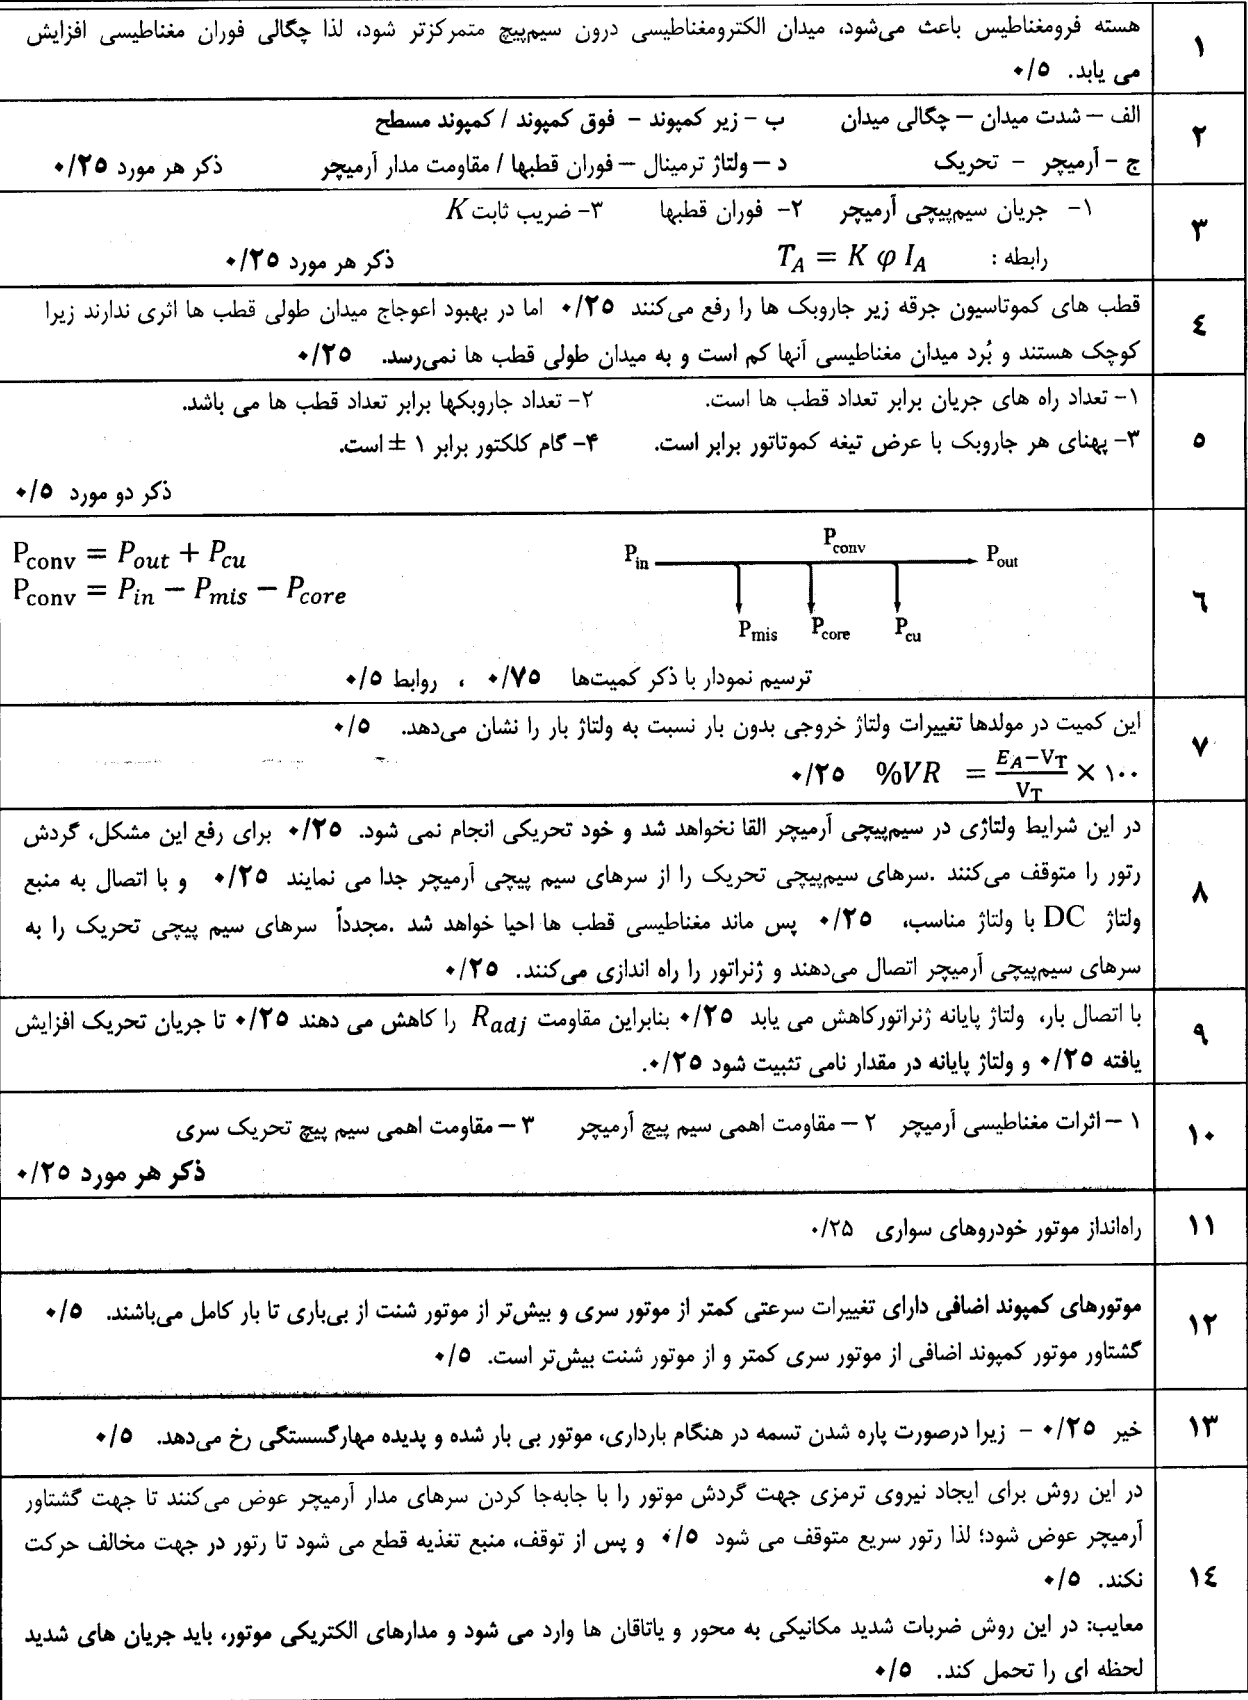 ۱
هسته فرومغناطیس باعث می‌شود، میدان الکترومغناطیسی درون سیم‌پیچ متمرکزتر شود، لذا چگالی فوران مغناطیسی افزایش
می یابد. ۰/۵
۲
الف – شدت میدان – چگالی میدان ب – زیر کمپوند – فوق کمپوند / کمپوند مسطح
ج – آرمیچر – تحریک د – ولتاژ ترمینال – فوران قطبها / مقاومت مدار آرمیچر ذکر هر مورد ۰/۲۵
۳
۱- جریان سیم‌پیچی آرمیچر ۲- فوران قطبها ۳- ضریب ثابت K
رابطه : T_A = K φ I_A ذکر هر مورد ۰/۲۵
۴
قطب های کموتاسیون جرقه زیر جاروبک ها را رفع می‌کنند ۰/۲۵ اما در بهبود اعوجاج میدان طولی قطب ها اثری ندارند زیرا
کوچک هستند و بُرد میدان مغناطیسی آنها کم است و به میدان طولی قطب ها نمی‌رسد. ۰/۲۵
۵
۱- تعداد راه های جریان برابر تعداد قطب ها است. ۲- تعداد جاروبکها برابر تعداد قطب ها می باشد.
۳- پهنای هر جاروبک با عرض تیغه کموتاتور برابر است. ۴- گام کلکتور برابر ۱ ± است.
ذکر دو مورد ۰/۵
۶
P_in P_conv P_out
P_mis P_core P_cu
P_conv = P_out + P_cu
P_conv = P_in − P_mis − P_core
ترسیم نمودار با ذکر کمیت‌ها ۰/۷۵ ، روابط ۰/۵
۷
این کمیت در مولدها تغییرات ولتاژ خروجی بدون بار نسبت به ولتاژ بار را نشان می‌دهد. ۰/۵
%VR = (E_A−V_T)/V_T × ۱۰۰ ۰/۲۵
۸
در این شرایط ولتاژی در سیم‌پیچی آرمیچر القا نخواهد شد و خود تحریکی انجام نمی شود. ۰/۲۵ برای رفع این مشکل، گردش
رتور را متوقف می‌کنند .سرهای سیم‌پیچی تحریک را از سرهای سیم پیچی آرمیچر جدا می نمایند ۰/۲۵ و با اتصال به منبع
ولتاژ DC با ولتاژ مناسب، ۰/۲۵ پس ماند مغناطیسی قطب ها احیا خواهد شد .مجدداً سرهای سیم پیچی تحریک را به
سرهای سیم‌پیچی آرمیچر اتصال می‌دهند و ژنراتور را راه اندازی می‌کنند. ۰/۲۵
۹
با اتصال بار، ولتاژ پایانه ژنراتورکاهش می یابد ۰/۲۵ بنابراین مقاومت R_adj را کاهش می دهند ۰/۲۵ تا جریان تحریک افزایش
یافته ۰/۲۵ و ولتاژ پایانه در مقدار نامی تثبیت شود ۰/۲۵.
۱۰
۱ – اثرات مغناطیسی آرمیچر ۲ – مقاومت اهمی سیم پیچ آرمیچر ۳ – مقاومت اهمی سیم پیچ تحریک سری
ذکر هر مورد ۰/۲۵
۱۱
راه‌انداز موتور خودروهای سواری ۰/۲۵
۱۲
موتورهای کمپوند اضافی دارای تغییرات سرعتی کمتر از موتور سری و بیش‌تر از موتور شنت از بی‌باری تا بار کامل می‌باشند. ۰/۵
گشتاور موتور کمپوند اضافی از موتور سری کمتر و از موتور شنت بیش‌تر است. ۰/۵
۱۳
خیر ۰/۲۵ – زیرا درصورت پاره شدن تسمه در هنگام بارداری، موتور بی بار شده و پدیده مهارگسستگی رخ می‌دهد. ۰/۵
۱۴
در این روش برای ایجاد نیروی ترمزی جهت گردش موتور را با جابه‌جا کردن سرهای مدار آرمیچر عوض می‌کنند تا جهت گشتاور
آرمیچر عوض شود؛ لذا رتور سریع متوقف می شود ۰/۵ و پس از توقف، منبع تغذیه قطع می شود تا رتور در جهت مخالف حرکت
نکند. ۰/۵
معایب: در این روش ضربات شدید مکانیکی به محور و یاتاقان ها وارد می شود و مدارهای الکتریکی موتور، باید جریان های شدید
لحظه ای را تحمل کند. ۰/۵